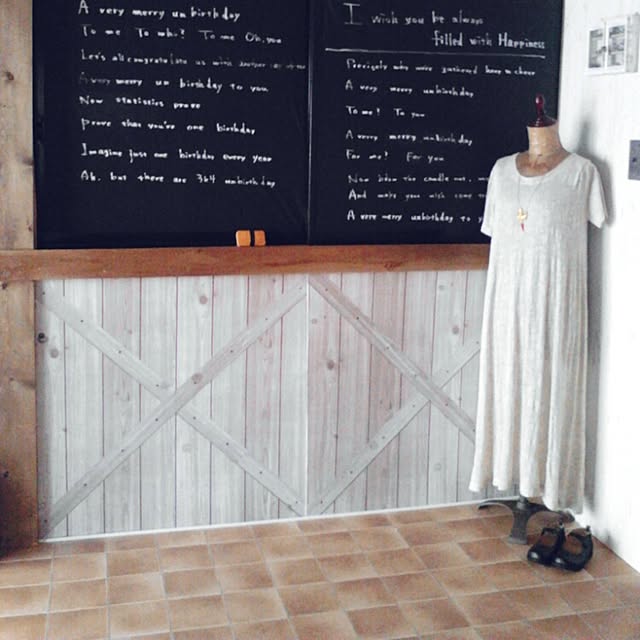 A very merry unbirthday
To me To who? To me Oh, you
Let's all congratulate us with another cup of tea
A very merry un birthday to you
Now statistics prove
prove that you're one birthday
Imagine just one birthday every year
Ah, but there are 364 unbirthday
I wish you be always
filled with Happiness
who were gathered here to cheer
A very merry unbirthday
To me? To you
A very merry unbirthday
For me? For you
Now blow the candle out, my
And make you wish come
A very merry unbirthday to y